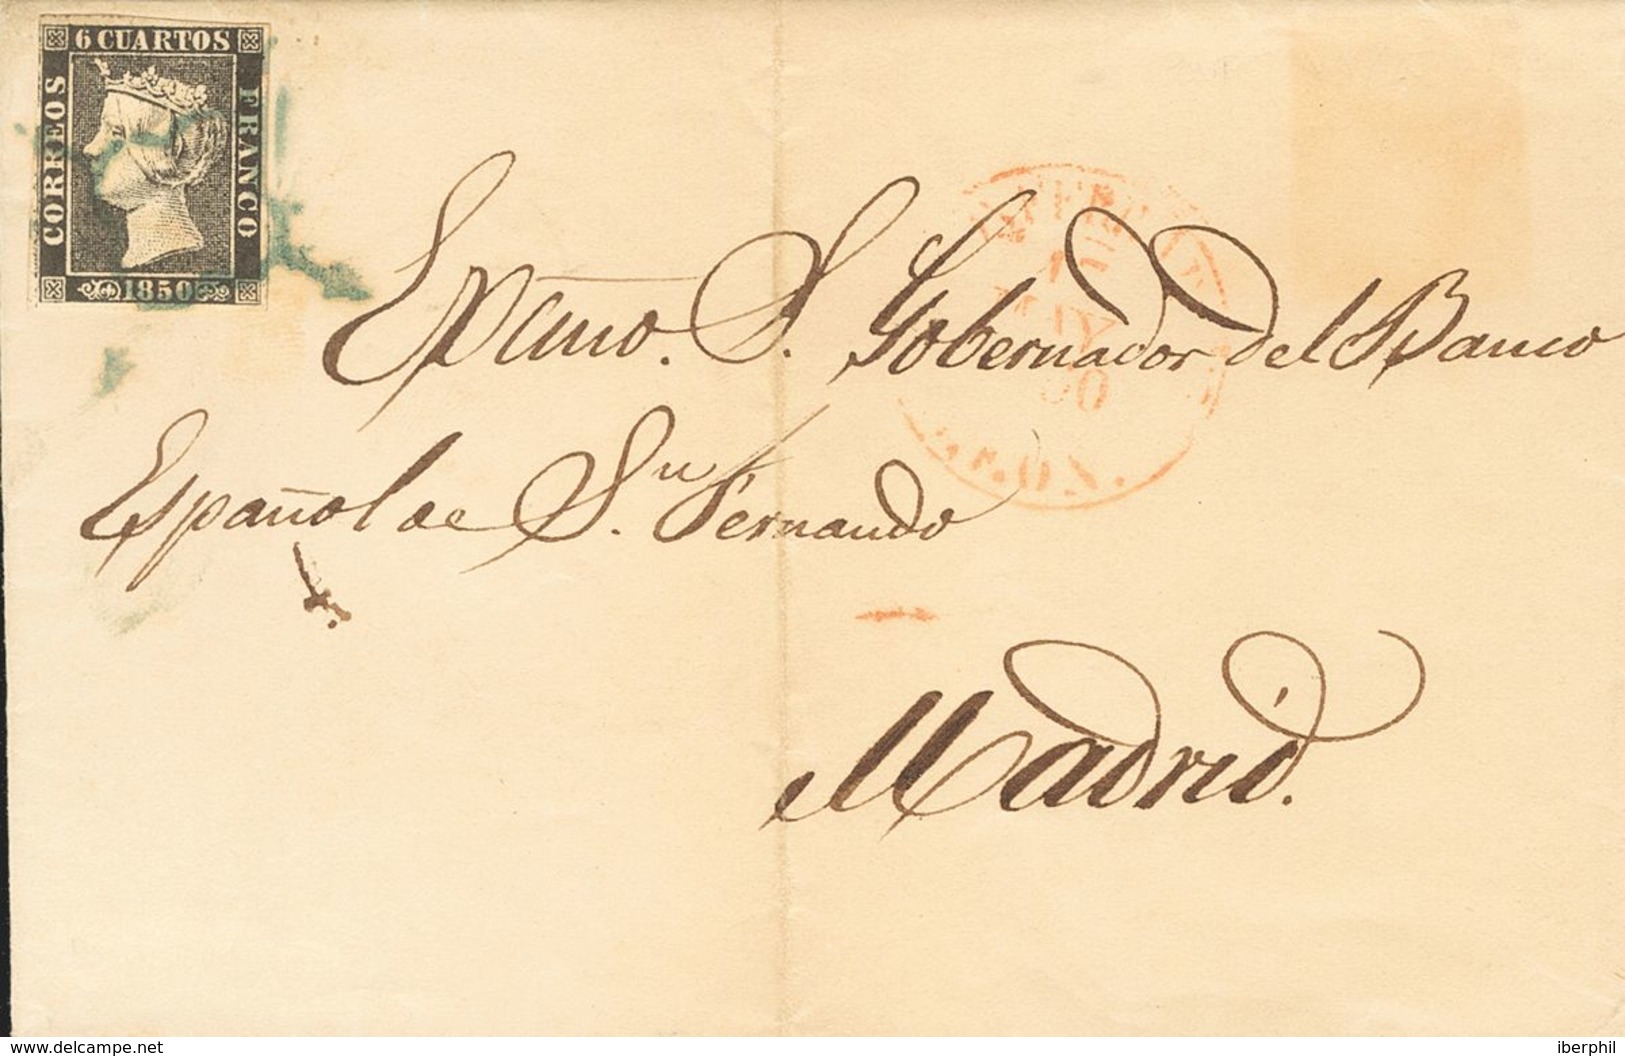 6 CUARTOS
CORREOS
FRANCO
1850
Excmo. S. Gobernador del Banco
Español de Sn. Fernando
Madrid.
delcampe.net
iberphil